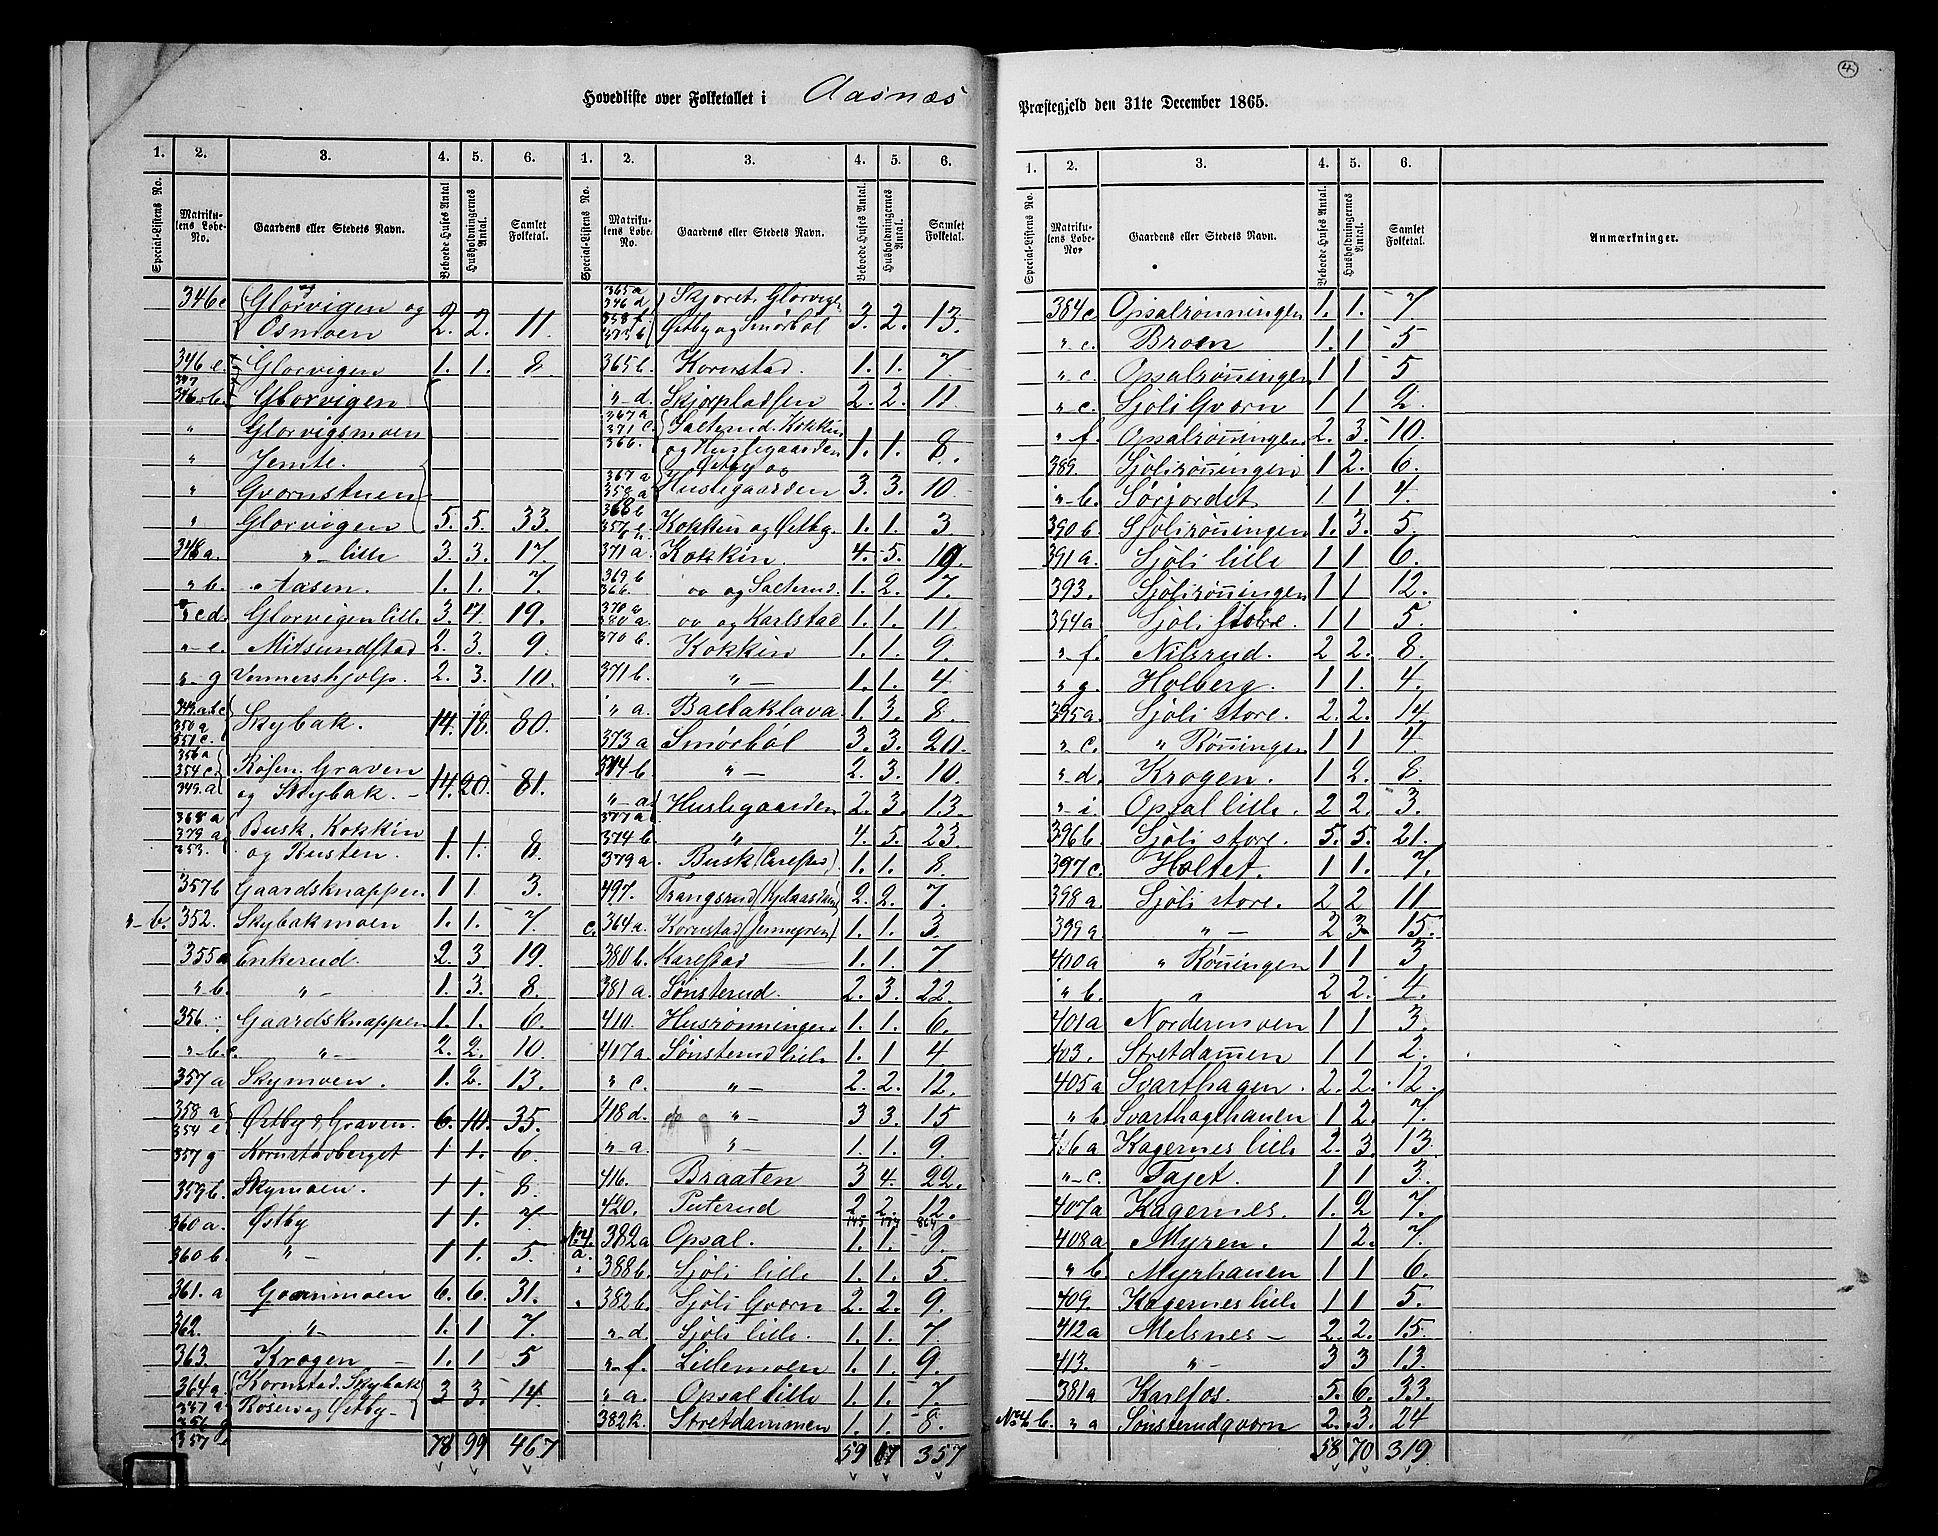 4
Hovedliste over Folketallet i Aasnæs
Præstegjeld den 31te December 1865.
1. 2. 3. 4. 5. 6. 1. 2. 3. 4. 5. 6.
Special-Listens No. Matrikulens Løbe-No. Gaardens eller Stedets Navn. Beboede Huses Antal Husholdningernes Antal. Samlet Folketal. Special-Listens No. Matrikulens Løbe-No. Gaardens eller Stedets Navn. Beboede Huses Antal. Husholdningernes Antal. Samlet Folketal.
346c Glorvigen og
Osmoen 2. 2. 11.
346 e. Glorvigen 1. 1. 8
346 b. Glorvigen
" Glorvigsmoen
" Jemte.
" Gvornstuen
" Glorvigen 5. 5. 33.
348a. " lille 3. 3. 17.
" b. " Aasen. 1. 1. 7.
" c d. Glorvigen lille 3. 4. 19.
" e. Mitsundstad 2. 3. 9
" g Vennershjolp. 2. 3. 10.
349.a.b.c
350 a
351 c. Skybak. 14. 18. 80.
356 a
354 c. Rosen, Graven
349. a og Skybak. 14. 20. 81.
368 a
379 a Busk, Kokkin
353. og Kusten. 1. 1. 8.
357 b Gaardsknappen. 1 1. 3.
"-b. 352. Skybakmoen 1. 1. 7.
355a Enkerud. 2. 3 19.
" b. " 1. 3. 8.
356. Gaardsknappen 1. 1. 6.
" b. c. " 2. 2. 10.
357 a Skymoen. 1. 2. 13.
358 a
354 e Østby & Graven. 6. 10. 35.
357 g Kornstadberget 1 1. 6.
359 b. Skymoen. 1 1. 8.
360 a. Østby 1 1. 7.
360 b. " 1 1. 5.
361. a Goarnmoen 6. 6. 31.
362. " 1. 1 7.
363. Krogen 1. 1 5
364 a. Kornstad, Skybak 3 3. 14.
Rosen og Østby
78 99 467
365 a
346 d Skjoret, Glorvigen
358 f
373 b Østby og Smørbøl 3. 2. 13.
365 b. Kornstad. 1. 1. 7
" d. Skjorpladsen 2. 2. 11.
367 a
371 c Sæterud, Kokkin
366. og Huslegaarden 1. 1. 8.
367 a Østby og
358 a Huslegaarden 3. 3. 10.
368 b
357 e. Kokkin og Østby. 1. 1. 3
371 a. Kokkin. 4. 5. 19.
369 b
366. " og Sæterud. 1. 2. 7.
370 a
380 a. " og Karlstad 1. 1. 11.
370 b. Kokkin 1. 1. 9.
371 b. " 1. 1. 4.
" a. Ballaklava 1. 3. 8.
373 a Smørbøl 3. 3. 20.
374 b " 2. 3. 10.
" a.
377 a Huslegaarden 2. 3. 13.
374 b. " 4. 5. 23
379 a. Busk (Carlstad) 1. 1. 8.
497. Trangsrud 2. 2. 7.
c. 364 a. Kornstad (Jenmyren) 1. 1. 3.
380 b. Karlstad 1. 1. 7
381 a. Sønsterud. 2. 3. 22.
410. Husrønningen 1. 1. 6.
417 a. Sønsterud lille 1. 1 4
" c. " 2. 2. 12.
418 d. " 3 3. 15
" a. " 1. 1. 9.
416. Braaten 3 4. 22.
420. Puterud 2 2. 12.
No. 4 a. 382a Opsal. 1. 1. 9.
" 388 b. Sjøli lille 1. 1. 5.
" 382 b. Sjøli Gvorn 2. 2. 9.
" d. Sjøli lille. 1. 1. 7
" f. Lillemoen 1. 1. 9.
" a. Opsal lille 1. 1. 7.
382 k. Stretdammen 1. 1. 8.
59 357
1. 2. 3. 4. 5. 6.
Special-Listens No. Matrikulens Løbe-No. Gaardens eller Stedets Navn. Beboede Huses Antal. Husholdningernes Antal. Samlet Folketal. Anmærkninger.
384 c. Opsalrønningen 1. 1. 7
" c. Broen 1. 1 5
" c. Opsalrønningen 1 1 5
" c. Sjøli Gvorn 1 1 2.
" f. Opsalrønningen 2. 3. 10.
389. Sjølirønningen 1 2. 6.
" b. Sørjordet 1 1 4.
390 b. Sjølirønningen 1. 3. 5.
391 a. Sjøli lille 1 1 6.
393. Sjølirønningen 1 1 12.
394 a Sjøli store. 1 1. 5.
" f. Nilsrud. 2 2. 8.
" g. Holberg. 1 1. 4.
395 a. Sjøli store. 2. 2. 14.
" c. " Rønningen 1 1 4.
" d. Krogen. 1 2. 8.
" i. Opsal lille. 2 2. 3.
396 b. Sjøli store. 5. 5. 21.
397 c. Holtet. 1 1. 7.
398 a. Sjøli store. 2 2 11
399 a. " 2 3 15.
400 a " Rønningen 1 1 3.
" b. " 2 2. 4.
401 a Nordermoen 1 1 3.
403. Stretdammen 1 1 2.
405 a Svarthagen. 2. 2. 12.
" b Svarthaghauen 1 2. 7.
406 a Kagernes lille 2. 3. 13.
" c. Tajet. 1 1 3.
407 a Kagernes. 1. 2 7.
408 a Myren. 1 2. 7.
" b. Myrhauen 1 1 6.
409. Kagernes lille 1 1 5.
412 a Melsnes 2. 2. 15.
413. " 3 3 13.
381 a Karlfos. 5. 6. 33.
No. 4 b. " a Sønsterudgvorn 2. 3. 24
58 70 319